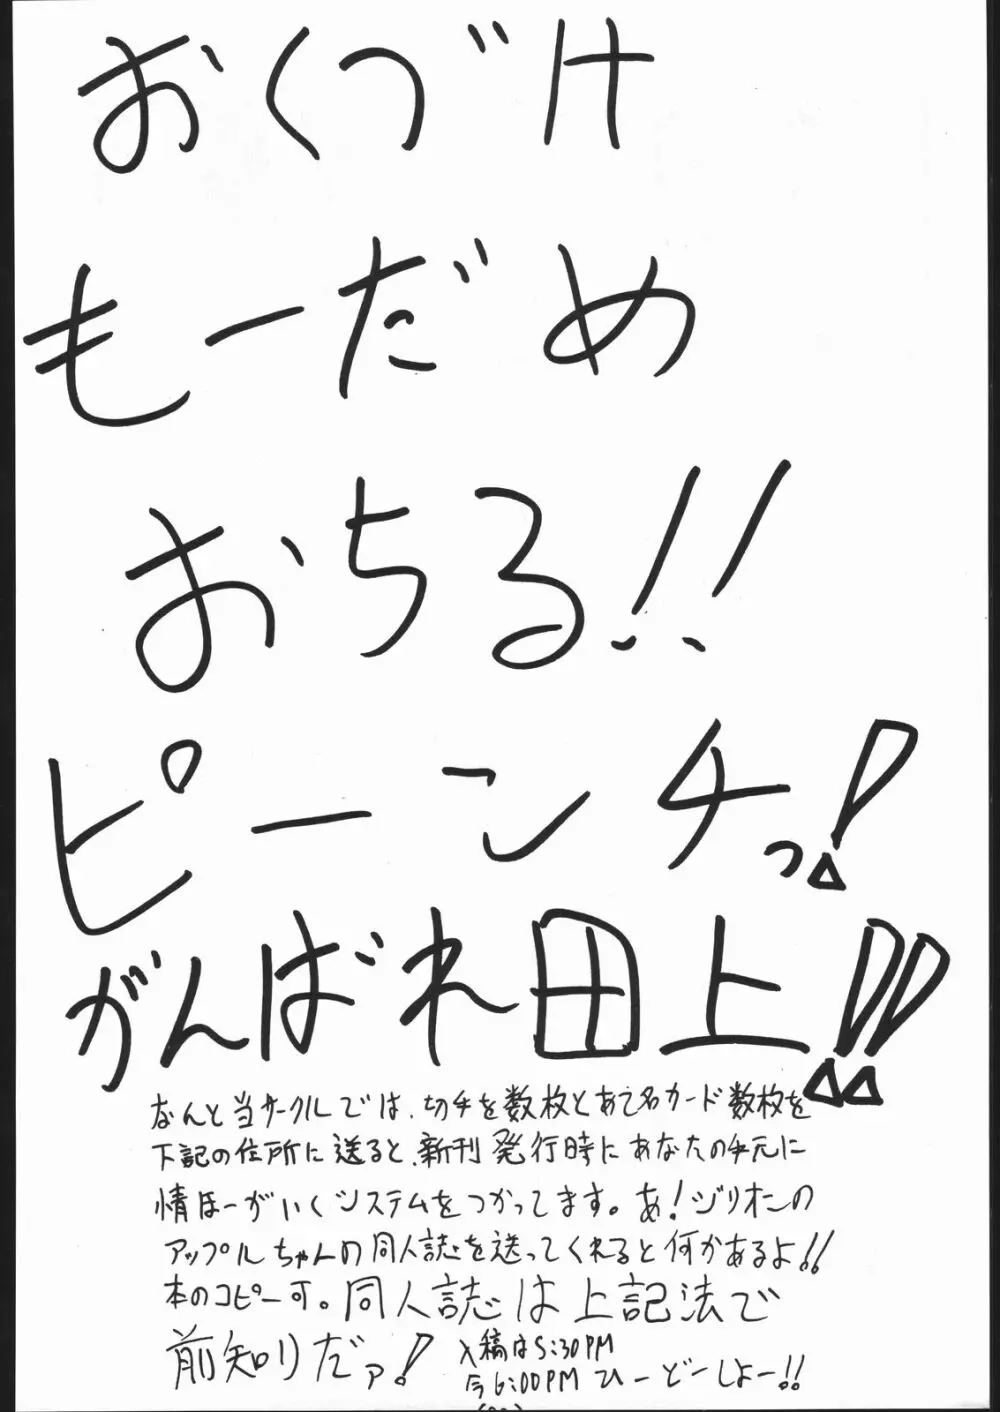 おくづけ
もーだめ
おちる!!
ピーンチっ!
がんばれ田上!!
なんと当サークルでは、切手を数枚とあて名カード数枚を
下記の住所に送ると、新刊発行時にあなたの手元に
情ほーがいくシステムをつかってます。あ!ジリオンの
アップルちゃんの同人誌を送ってくれると何かあるよ!!
本のコピー可。同人誌は上記法で
前知りだァ!
入稿は5:30PM
今6:00PM ひーどーしよー!!